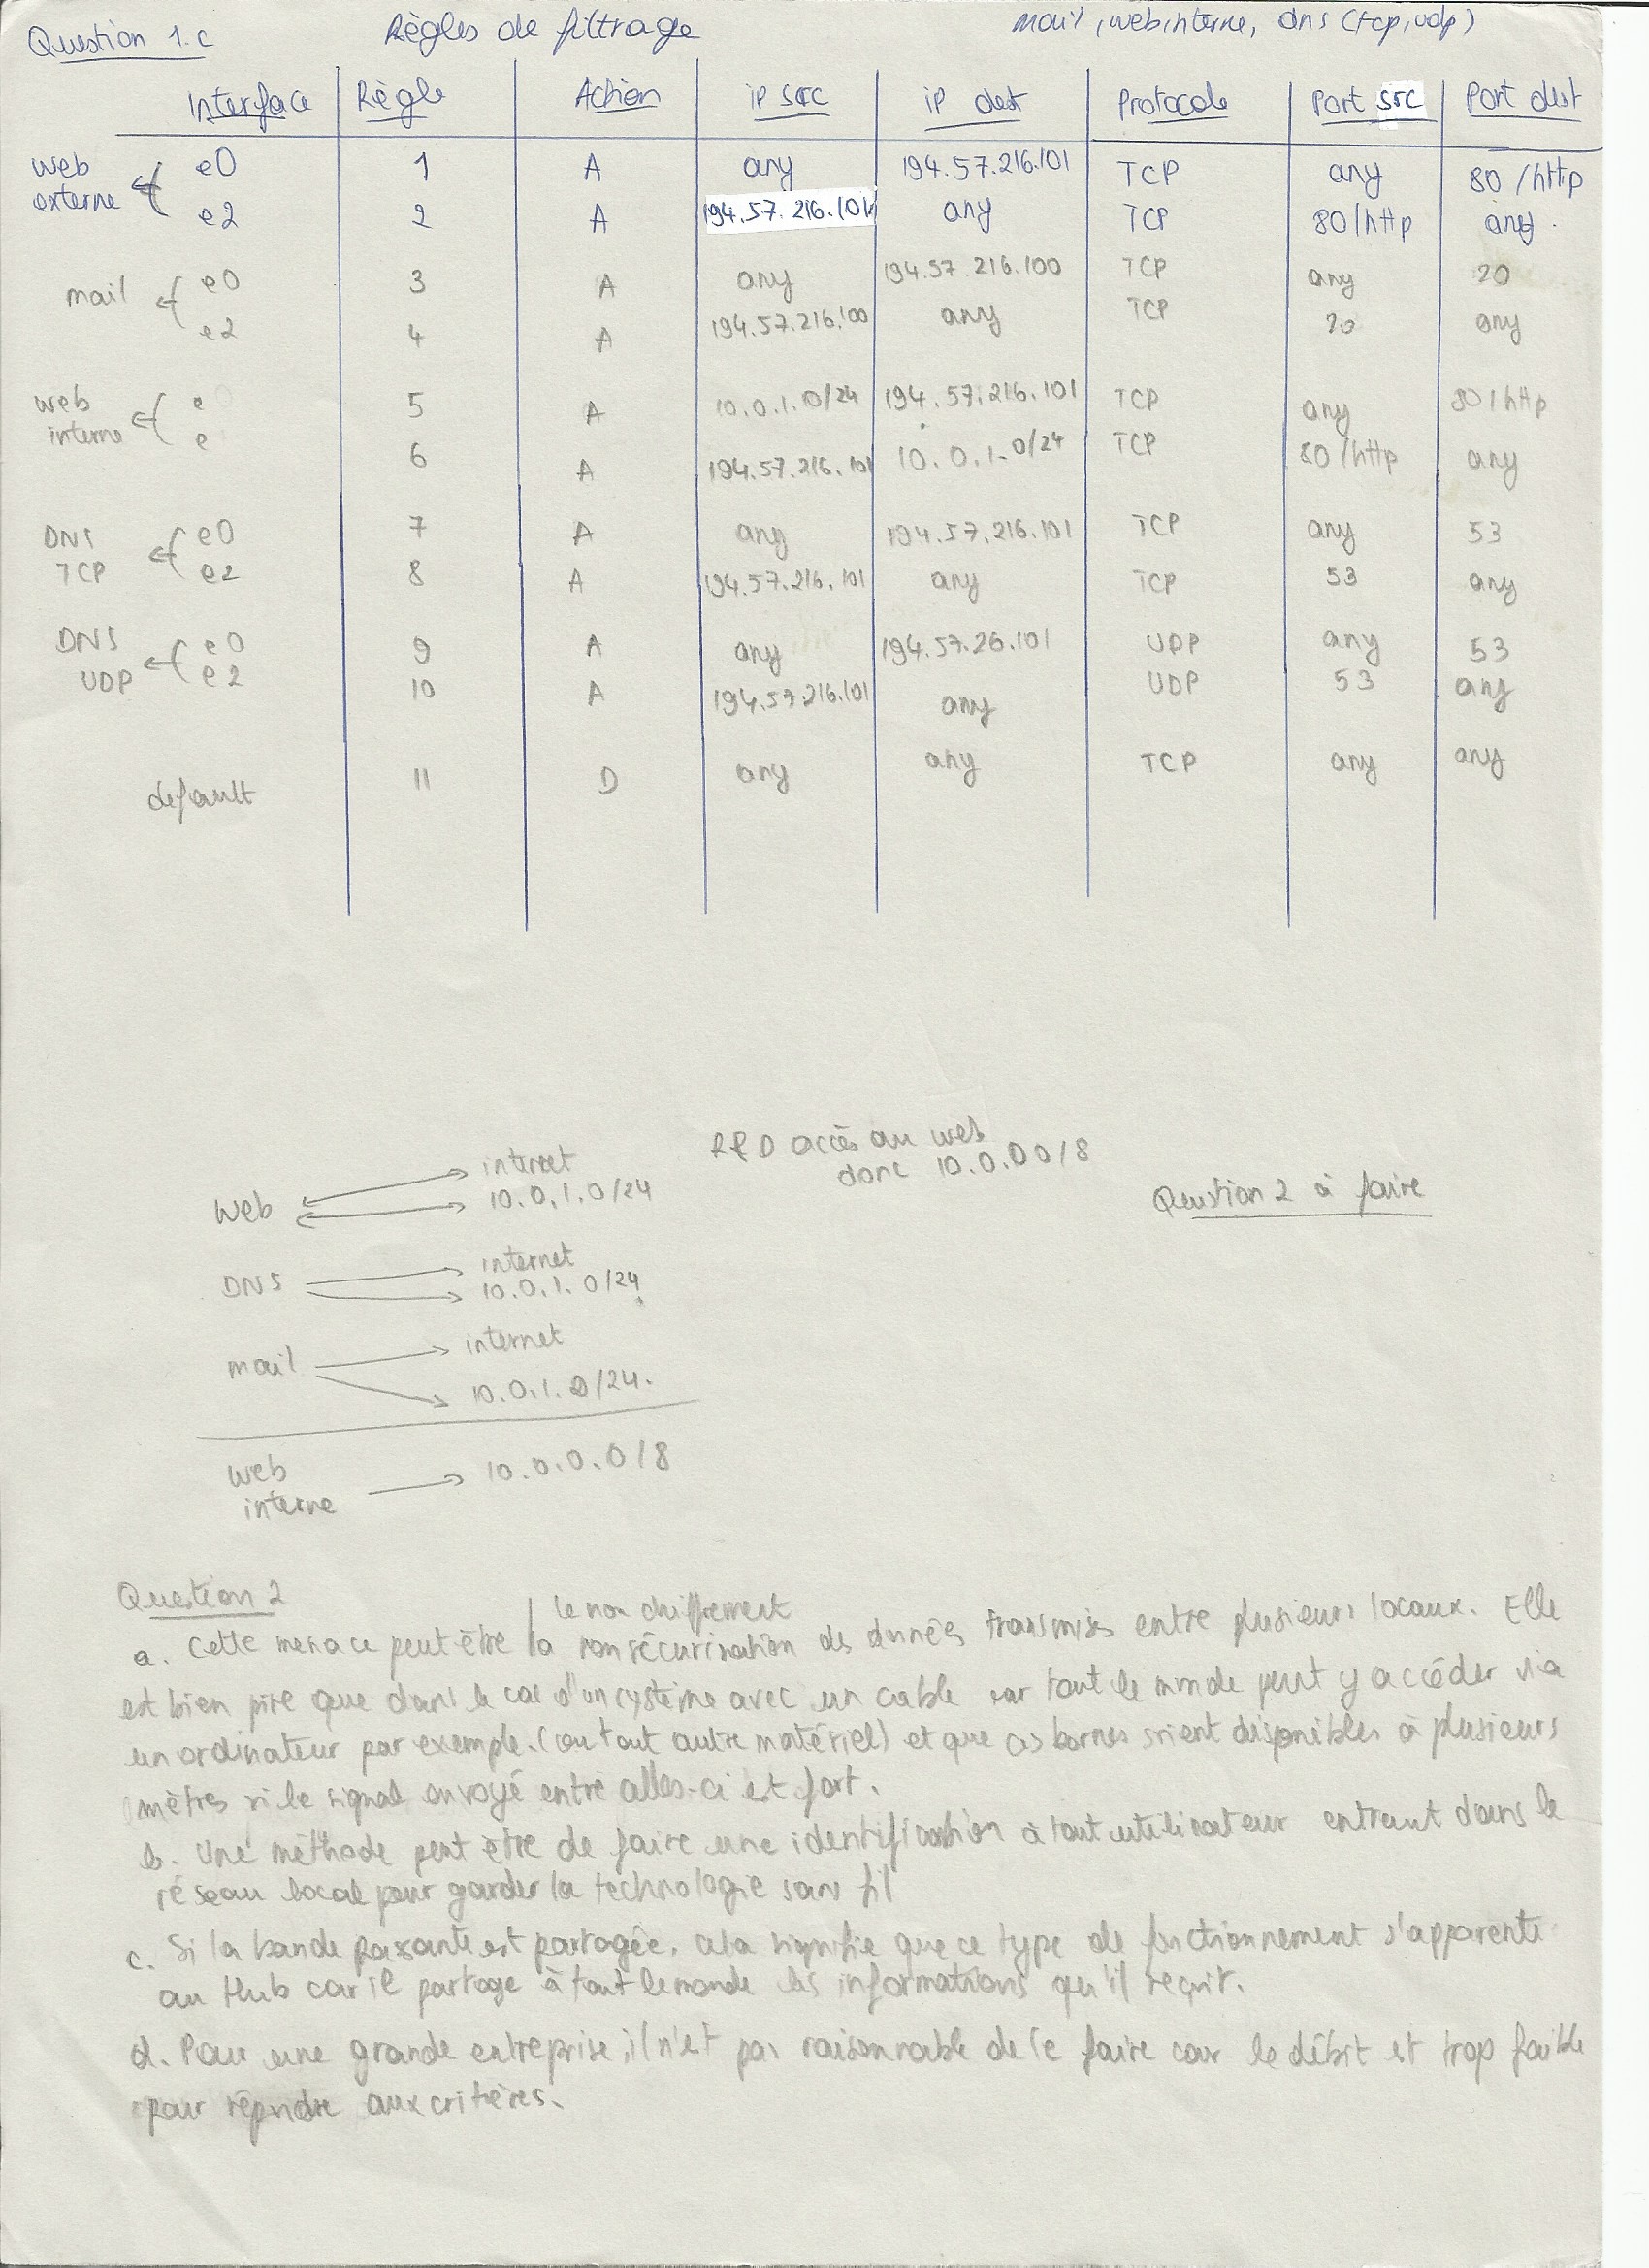 Question 1.c Règles de filtrage mail, web interne, dns (tcp, udp)
Interface Règle Action iP src iP dest Protocole Port src Port dest
web externe e0 1 A any 194.57.216.101 TCP any 80/http
e2 2 A 194.57.216.101 any TCP 80/http any.
mail e0 3 A any 194.57.216.100 TCP any 20
e2 4 A 194.57.216.100 any TCP 20 any
web interne e 5 A 10.0.1.0/24 194.57.216.101 TCP any 80/http
e 6 A 194.57.216.101 10.0.1.0/24 TCP 80/http any
DNS TCP e0 7 A any 194.57.216.101 TCP any 53
e2 8 A 194.57.216.101 any TCP 53 any
DNS UDP e0 9 A any 194.57.26.101 UDP any 53
e2 10 A 194.57.216.101 any UDP 53 any
default 11 D any any TCP any any
R&D accès au web
donc 10.0.00/8
Question 2 à faire
internet
Web 10.0.1.0/24
internet
DNS 10.0.1.0/24
internet
mail
10.0.1.0/24.
web interne 10.0.0.0/8
Question 2
le non chiffrement
a. Cette menace peut être / la non sécurisation des données transmises entre plusieurs locaux. Elle
est bien pire que dans le cas d'un système avec un cable car tout le monde peut y accéder via
un ordinateur par exemple. (ou tout autre matériel) et que ces bornes soient disponibles à plusieurs
mètres si le signal envoyé entre celles-ci est fort.
b. Une méthode peut être de faire une identification à tout utilisateur entrant dans le
réseau local pour garder la technologie sans fil
c. Si la bande passante est partagée, cela signifie que ce type de fonctionnement s'apparente
au Hub car il partage à tout le monde les informations qu'il reçoit.
d. Pour une grande entreprise, il n'est pas raisonnable de le faire car le débit est trop faible
pour répondre aux critères.